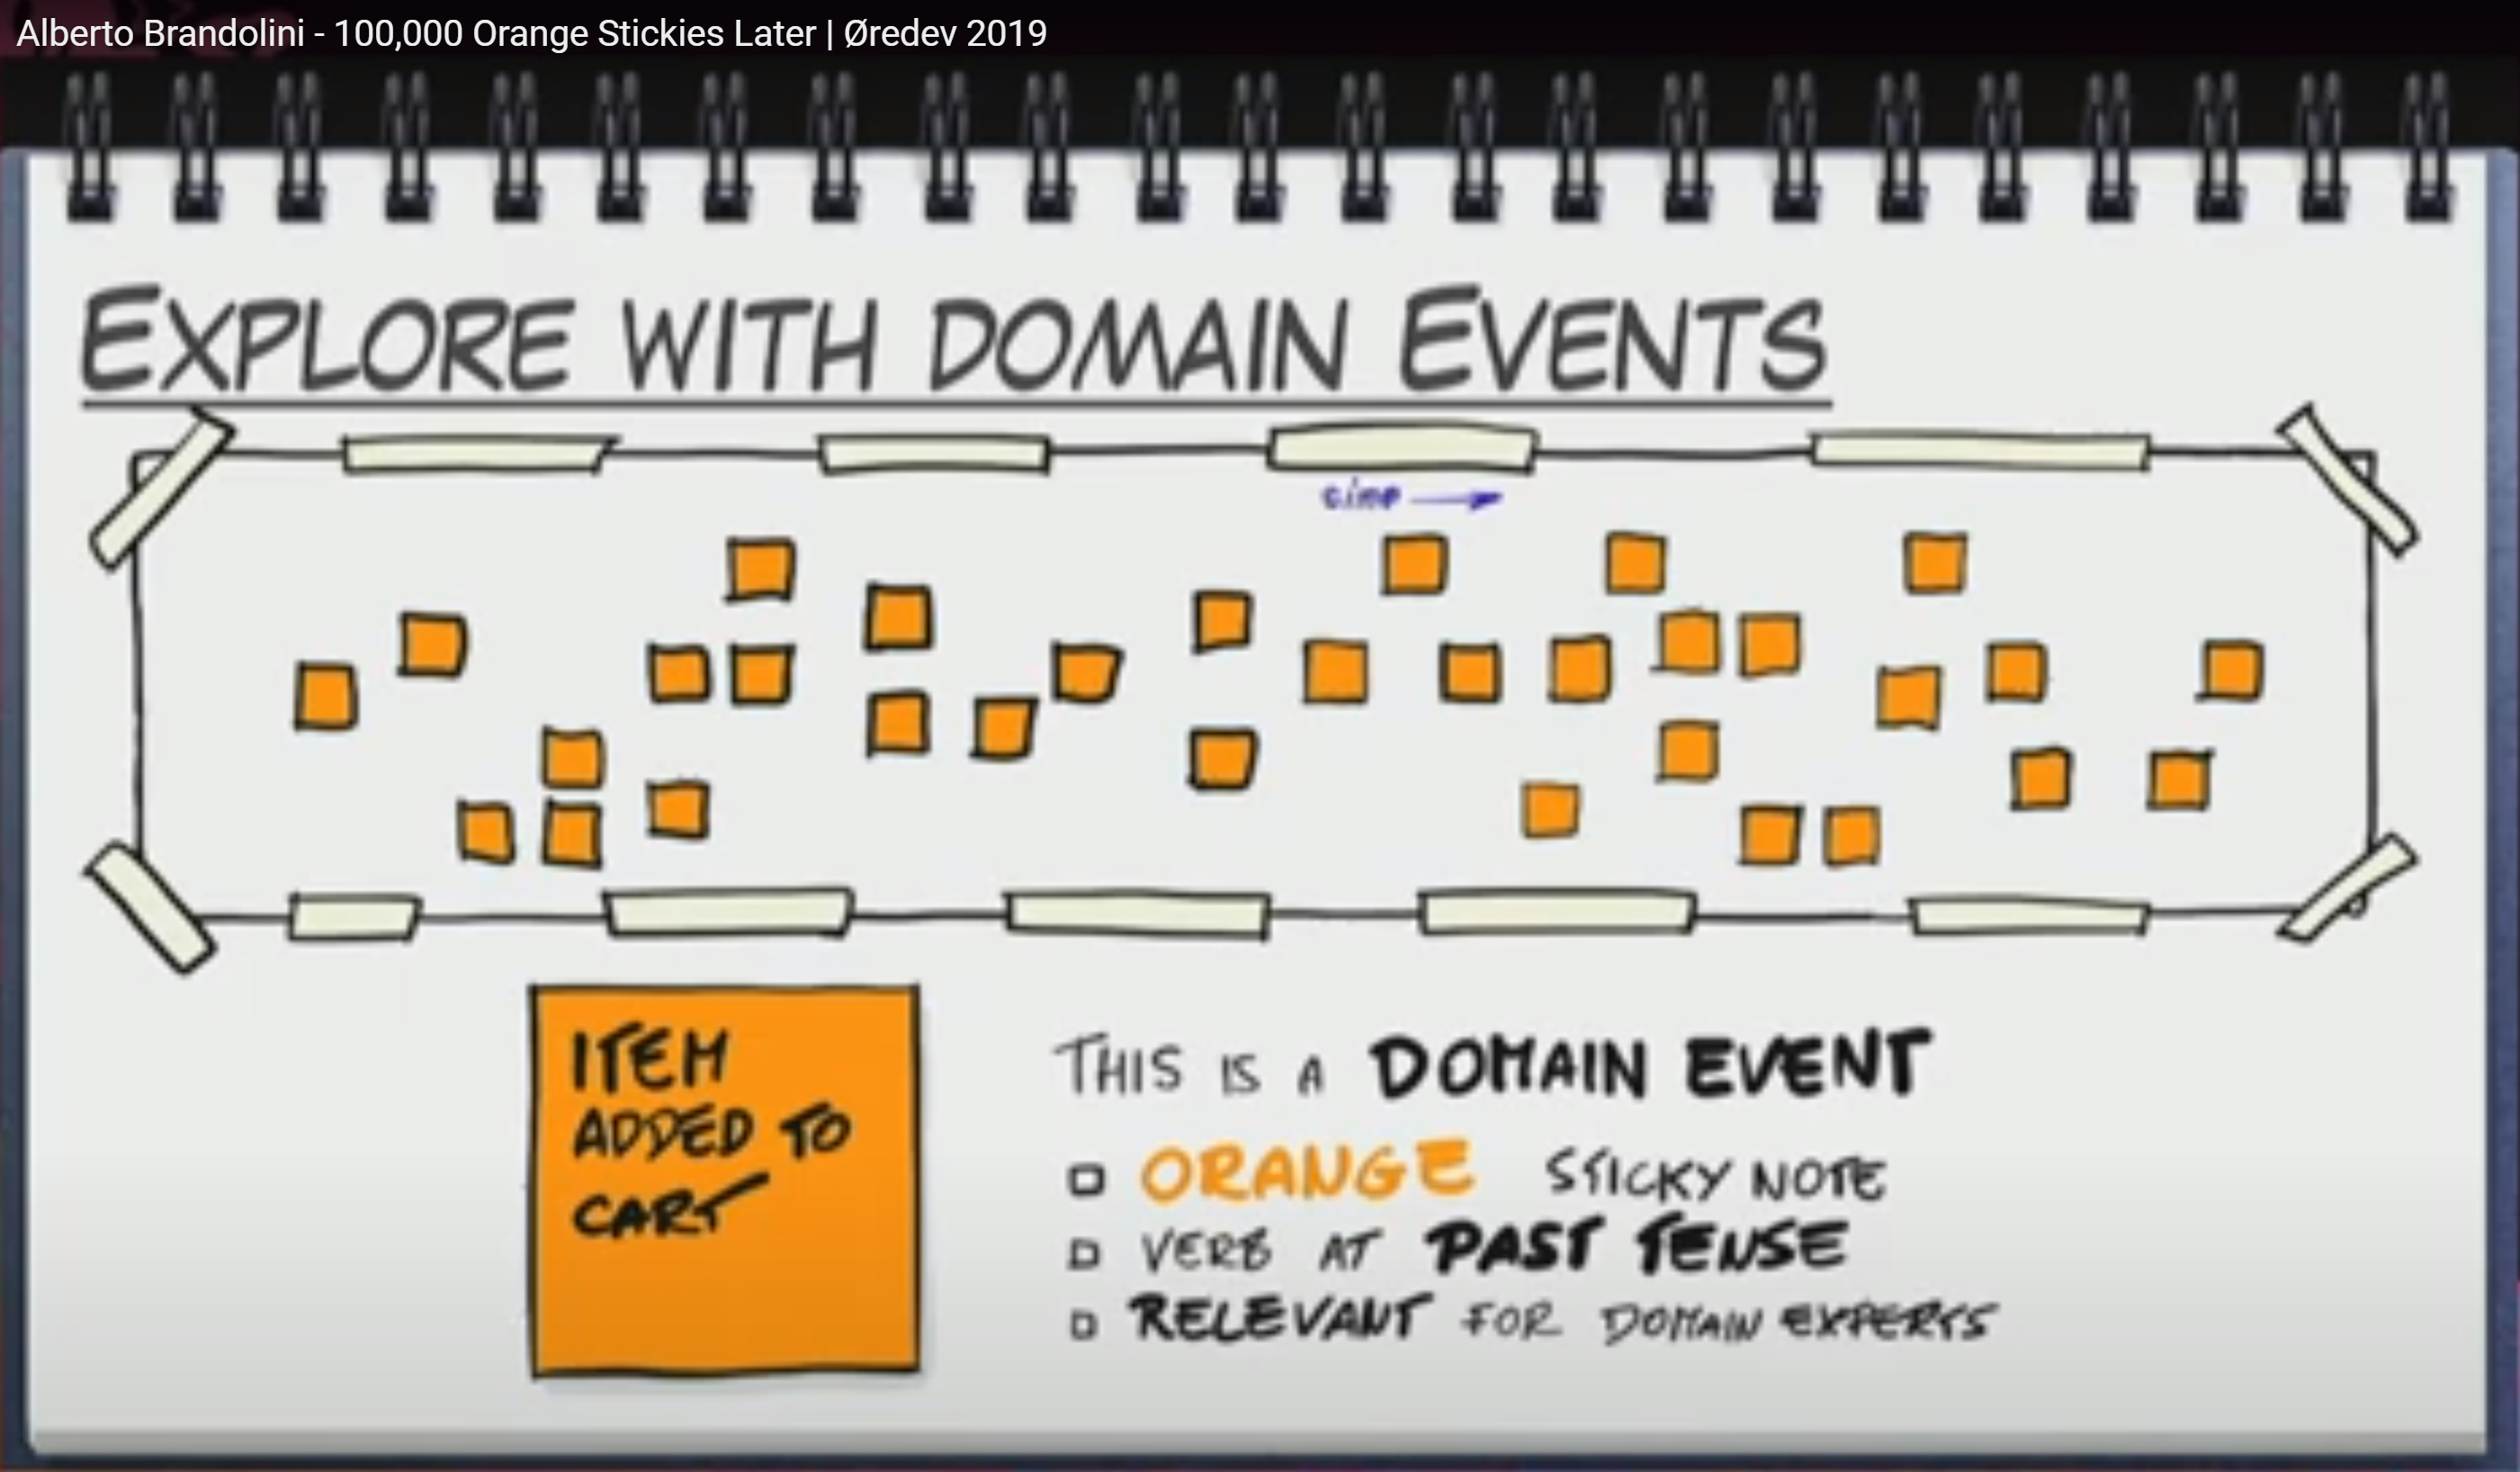 Alberto Brandolini - 100,000 Orange Stickies Later | Øredev 2019
EXPLORE WITH DOMAIN EVENTS
ITEM
ADDED TO
CART
THIS IS A DOMAIN EVENT
ORANGE STICKY NOTE
VERB AT PAST TENSE
RELEVANT FOR DOMAIN EXPERTS